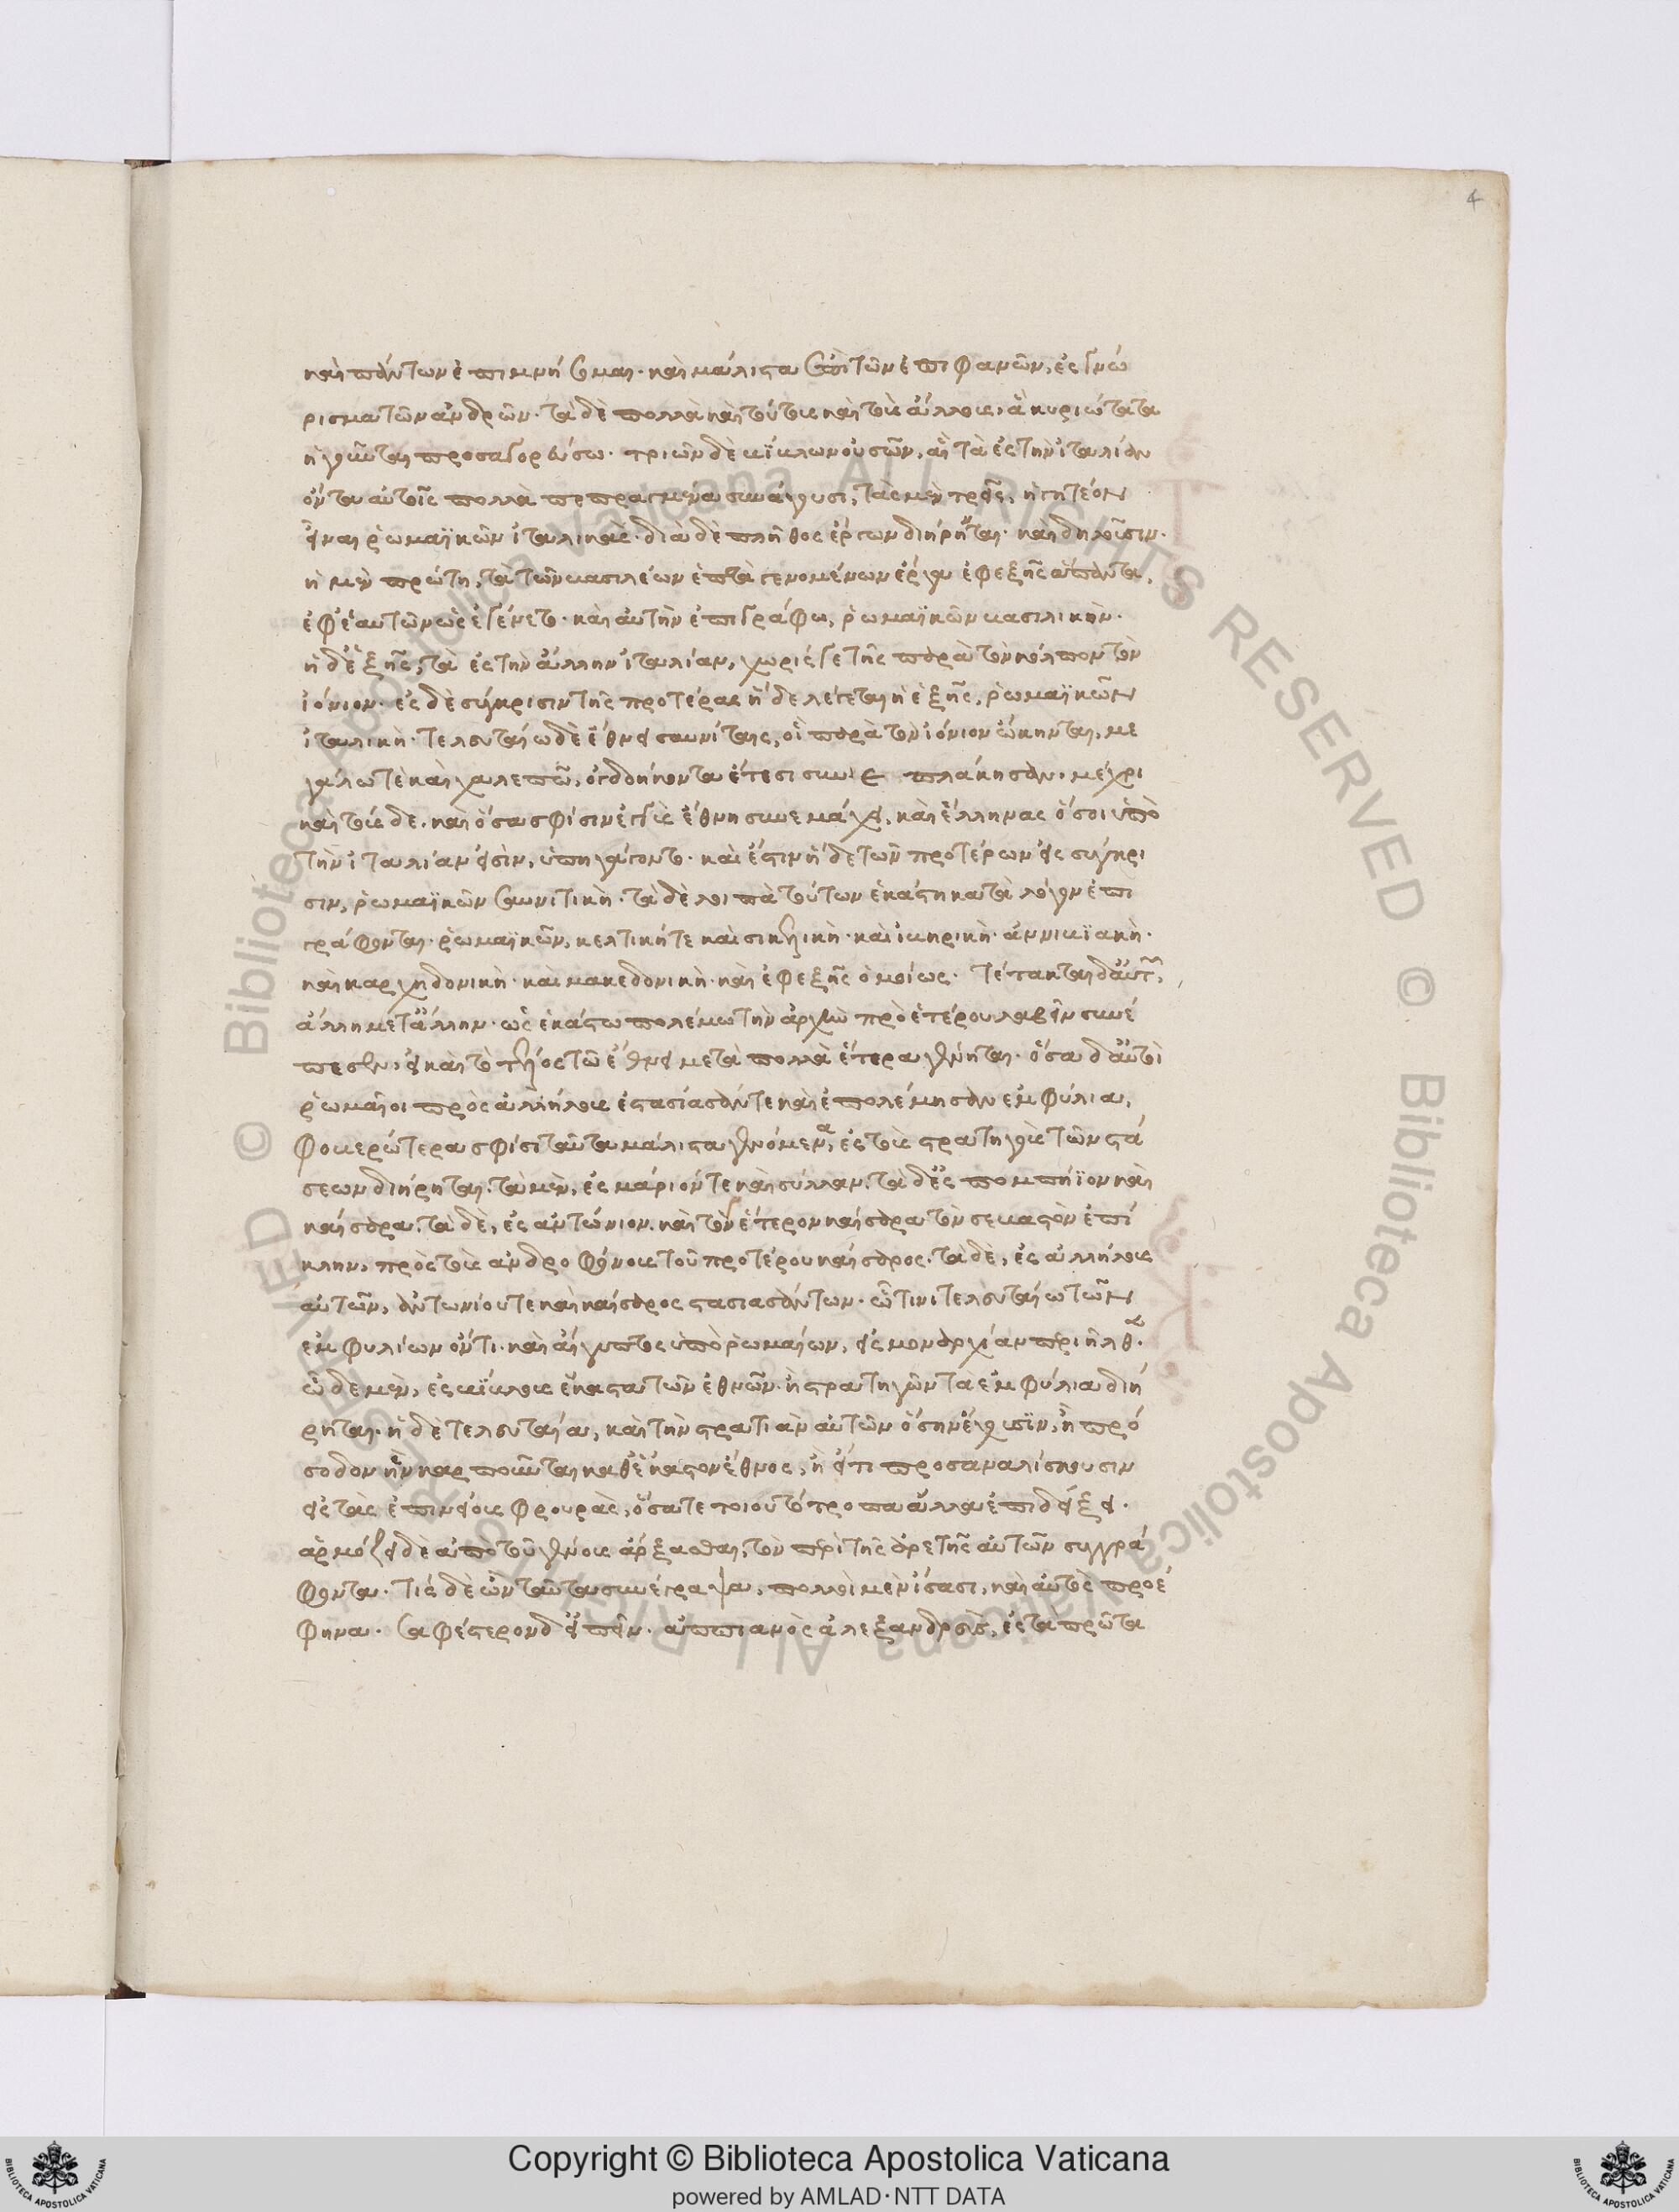 4
καὶ πάντων ἐπιμνήσομαι· καὶ μάλιστα ἐπὶ τῶν ἐπιφανῶν, ἐς γνώ
ρισμα τῶν ἀνδρῶν· τὰ δὲ πολλὰ καὶ τούτους καὶ τοὺς ἄλλους, ἃ κυριώτατα
ἡγοῦνται προσαγορεύσω· τριῶν δὲ βίβλων οὐσῶν, αἳ τὰ ἐς τὴν ἰταλίαν
ὄντα αὐτοῖς πολλὰ πεπραγμένα συνάγουσι, τὰς μὲν τρεῖς, ἡγητέον
εἶναι ῥωμαϊκῶν ἰταλικάς· διὰ δὲ πλῆθος ἔργων διῄρηνται· καὶ δηλοῦσιν·
ἡ μὲν πρώτη, τὰ τῶν βασιλέων ἑπτὰ γενομένων ἔργα ἐφεξῆς ἅπαντα,
ἐφ' ἑαυτῶν ὡς ἐγένετο· καὶ αὐτὴν ἐπιγράφω, ῥωμαϊκῶν βασιλικήν·
ἡ δ' ἑξῆς, τὰ ἐς τὴν ἄλλην ἰταλίαν, χωρίς γε τῆς παρὰ τὸν κόλπον τὸν
ἰόνιον· ἐς δὲ σύγκρισιν τῆς προτέρας ἥδε λέγεται ἡ ἑξῆς, ῥωμαϊκῶν
ἰταλική· τελευταίω δὲ ἔθνει σαυνίταις, οἳ παρὰ τὸν ἰόνιον ᾤκηνται, με
γάλω τὲ καὶ χαλεπῶ, ὀγδοήκοντα ἔτεσι συνεπλάκησαν, μέχρι
καὶ τούσδε· καὶ ὅσα σφίσιν ἐγγὺς ἔθνη συνεμάχει, καὶ ἕλληνας ὅσοι ὑπὸ
τὴν ἰταλίαν εἰσὶν, ὑπηγάγοντο· καὶ ἔστιν ἥδε τῶν προτέρων εἰς σύγκρι
σιν, ῥωμαϊκῶν σαυνιτική· τὰ δὲ λοιπὰ τούτων ἑκάστη κατὰ λόγον ἐπι
γράφονται· ῥωμαϊκῶν, κελτική τε καὶ σικελική· καὶ ἰβηρική· ἀννιβϊακή·
καὶ καρχηδονική· καὶ μακεδονική· καὶ ἐφεξῆς ὁμοίως· τέτακται δ' αὐτῶν,
ἄλλη μετ' ἄλλην· ὡς ἑκάστω πολέμω τὴν ἀρχὴν πρὸ ἑτέρου λαβεῖν συνέ
πεσεν, εἰ καὶ τὸ τέλος τῶ ἔθνει μετὰ πολλὰ ἕτερα γεγένηται· ὅσα δ' αὐτοὶ
ῥωμαῖοι πρὸς ἀλλήλους ἐστασίασάν τε καὶ ἐπολέμησαν ἐμφύλια,
φοβερώτερα σφίσι ταῦτα μάλιστα γενόμενα, ἐς τοὺς στρατηγοὺς τῶν στά
σεων διῄρηται· τὰ μὲν, ἐς μάριόν τε καὶ σύλλαν· τὰ δ' ἐς πομπήϊον καὶ
καίσαρα· τὰ δὲ, ἐς ἀντώνιον καὶ τὸν ἕτερον καίσαρα τὸν σεβαστὸν ἐπί
κλην, πρὸς τοὺς ἀνδροφόνους τοῦ προτέρου καίσαρος· τὰ δὲ, ἐς ἀλλήλους
αὐτῶν, ἀντωνίου τε καὶ καίσαρος στασιασάντων· ᾧτινι τελευταίω τῶν
ἐμφυλίων ὄντι· καὶ αἴγυπτος ὑπὸ ῥωμαίων, εἰς μοναρχίαν περιῆλθεν·
ὧδε μὲν, ἐς βίβλους ἕκαστα τῶν ἐθνῶν· ἢ στρατηγῶν τὰ ἐμφύλια διῄ
ρηται· ἡ δὲ τελευταία, καὶ τὴν στρατιὰν αὐτῶν ὅσην ἔχουσϊν, ἢ πρό
σοδον ἣν καρποῦνται καθ' ἕκαστον ἔθνος, ἢ εἴ τι προσαναλίσκουσιν
εἰς τὰς ἐπινείους φρουρὰς, ὅσα τε τοιουτότροπα ἄλλα ἐπιδείξει·
ἁρμόζει δὲ ἀπὸ τοῦ γένους ἄρξασθαι, τὸν περὶ τῆς ἀρετῆς αὐτῶν συγγρά
φοντα· τίς δὲ ὢν ταῦτα συνέγραψα, πολλοὶ μὲν ἴσασι, καὶ αὐτὸς προέ
φηνα· σαφέστερον δ' εἰπεῖν· ἀππιανὸς ἀλεξανδρεὺς, ἐς τὰ πρῶτα
Copyright © Biblioteca Apostolica Vaticana
powered by AMLAD·NTT DATA